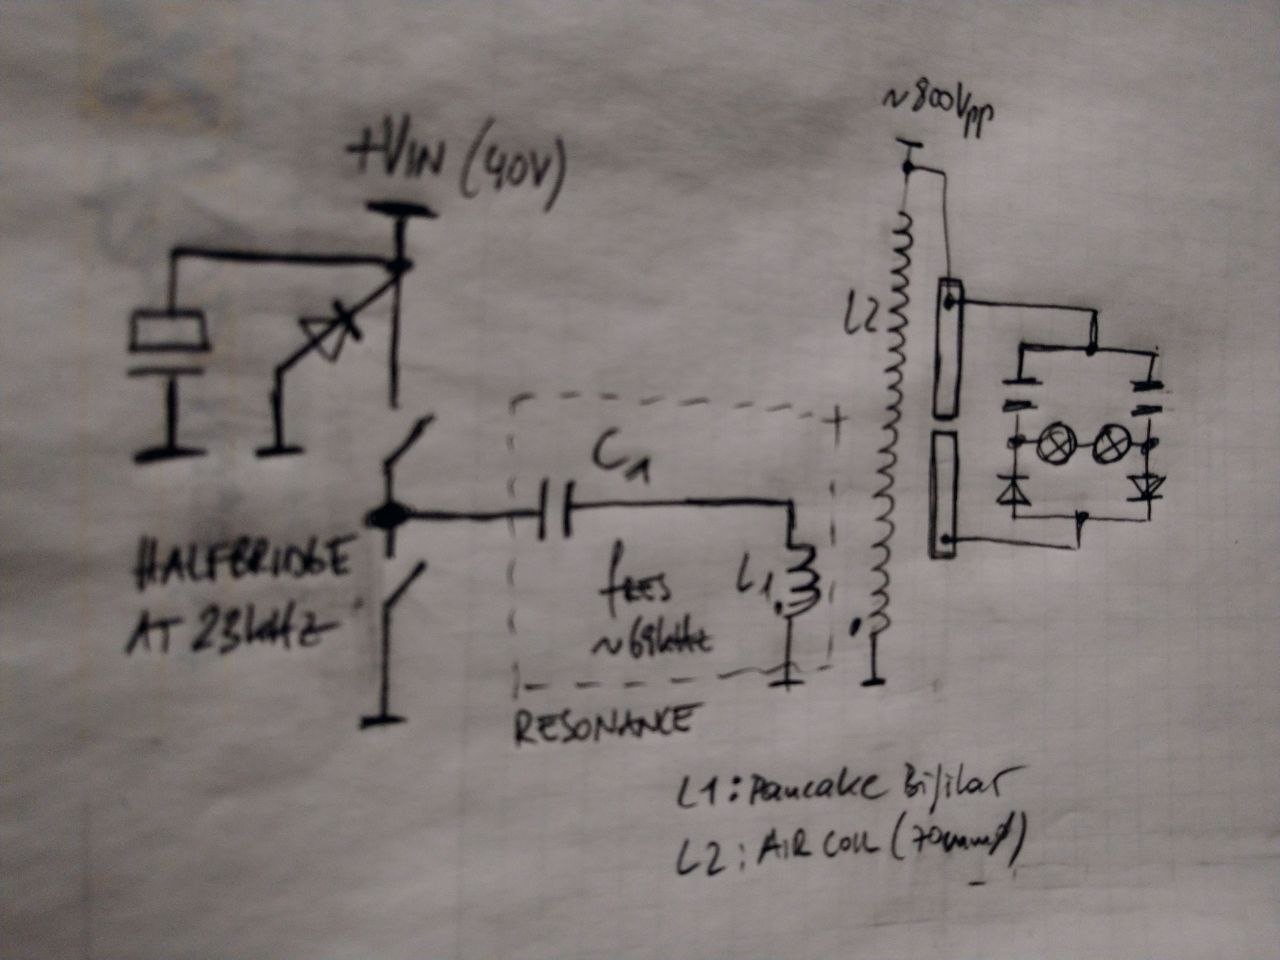 ~800Vpp
+VIN (40V)
L2
C1
HALFBRIDGE
AT 23kHz
fRES
~69kHz
L1
RESONANCE
L1: Pancake Bifilar
L2: AIR COIL (70mmø)